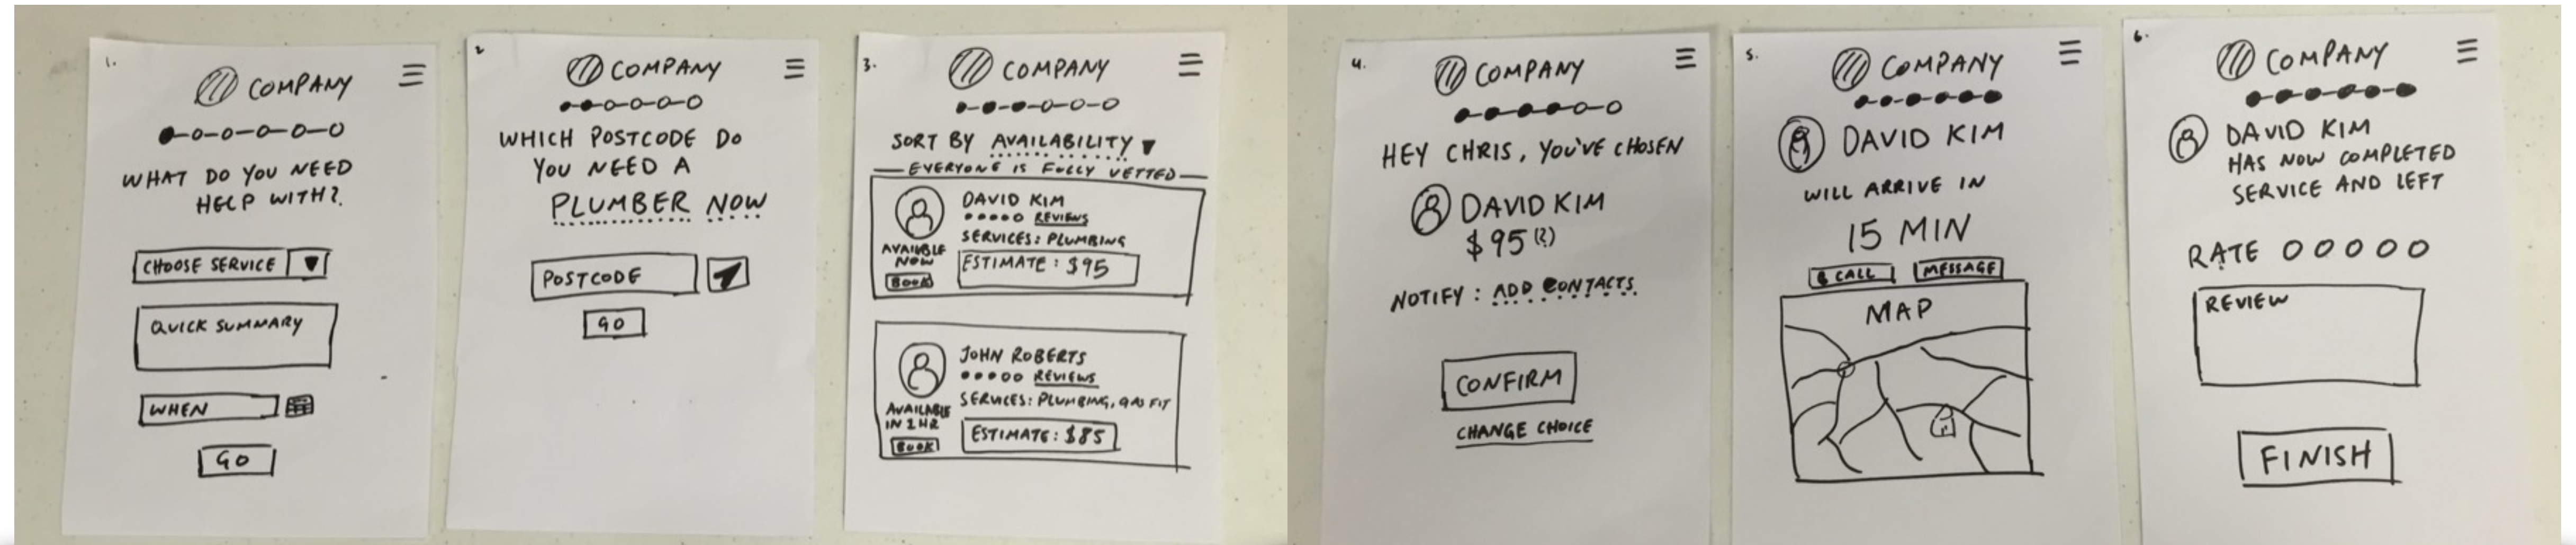 1.
COMPANY
WHAT DO YOU NEED
HELP WITH?
CHOOSE SERVICE
QUICK SUMMARY
WHEN
GO
2
COMPANY
WHICH POSTCODE DO
YOU NEED A
PLUMBER NOW
POSTCODE
GO
3.
COMPANY
SORT BY AVAILABILITY
EVERYONE IS FULLY VETTED
DAVID KIM
REVIEWS
SERVICES: PLUMBING
AVAILABLE
NOW
ESTIMATE: $95
BOOK
JOHN ROBERTS
REVIEWS
SERVICES: PLUMBING, GAS FIT
AVAILABLE
IN 2 HR
ESTIMATE: $85
BOOK
4.
COMPANY
HEY CHRIS, YOU'VE CHOSEN
DAVID KIM
$95 (?)
NOTIFY: ADD CONTACTS
CONFIRM
CHANGE CHOICE
5.
COMPANY
DAVID KIM
WILL ARRIVE IN
15 MIN
CALL MESSAGE
MAP
6.
COMPANY
DAVID KIM
HAS NOW COMPLETED
SERVICE AND LEFT
RATE
REVIEW
FINISH